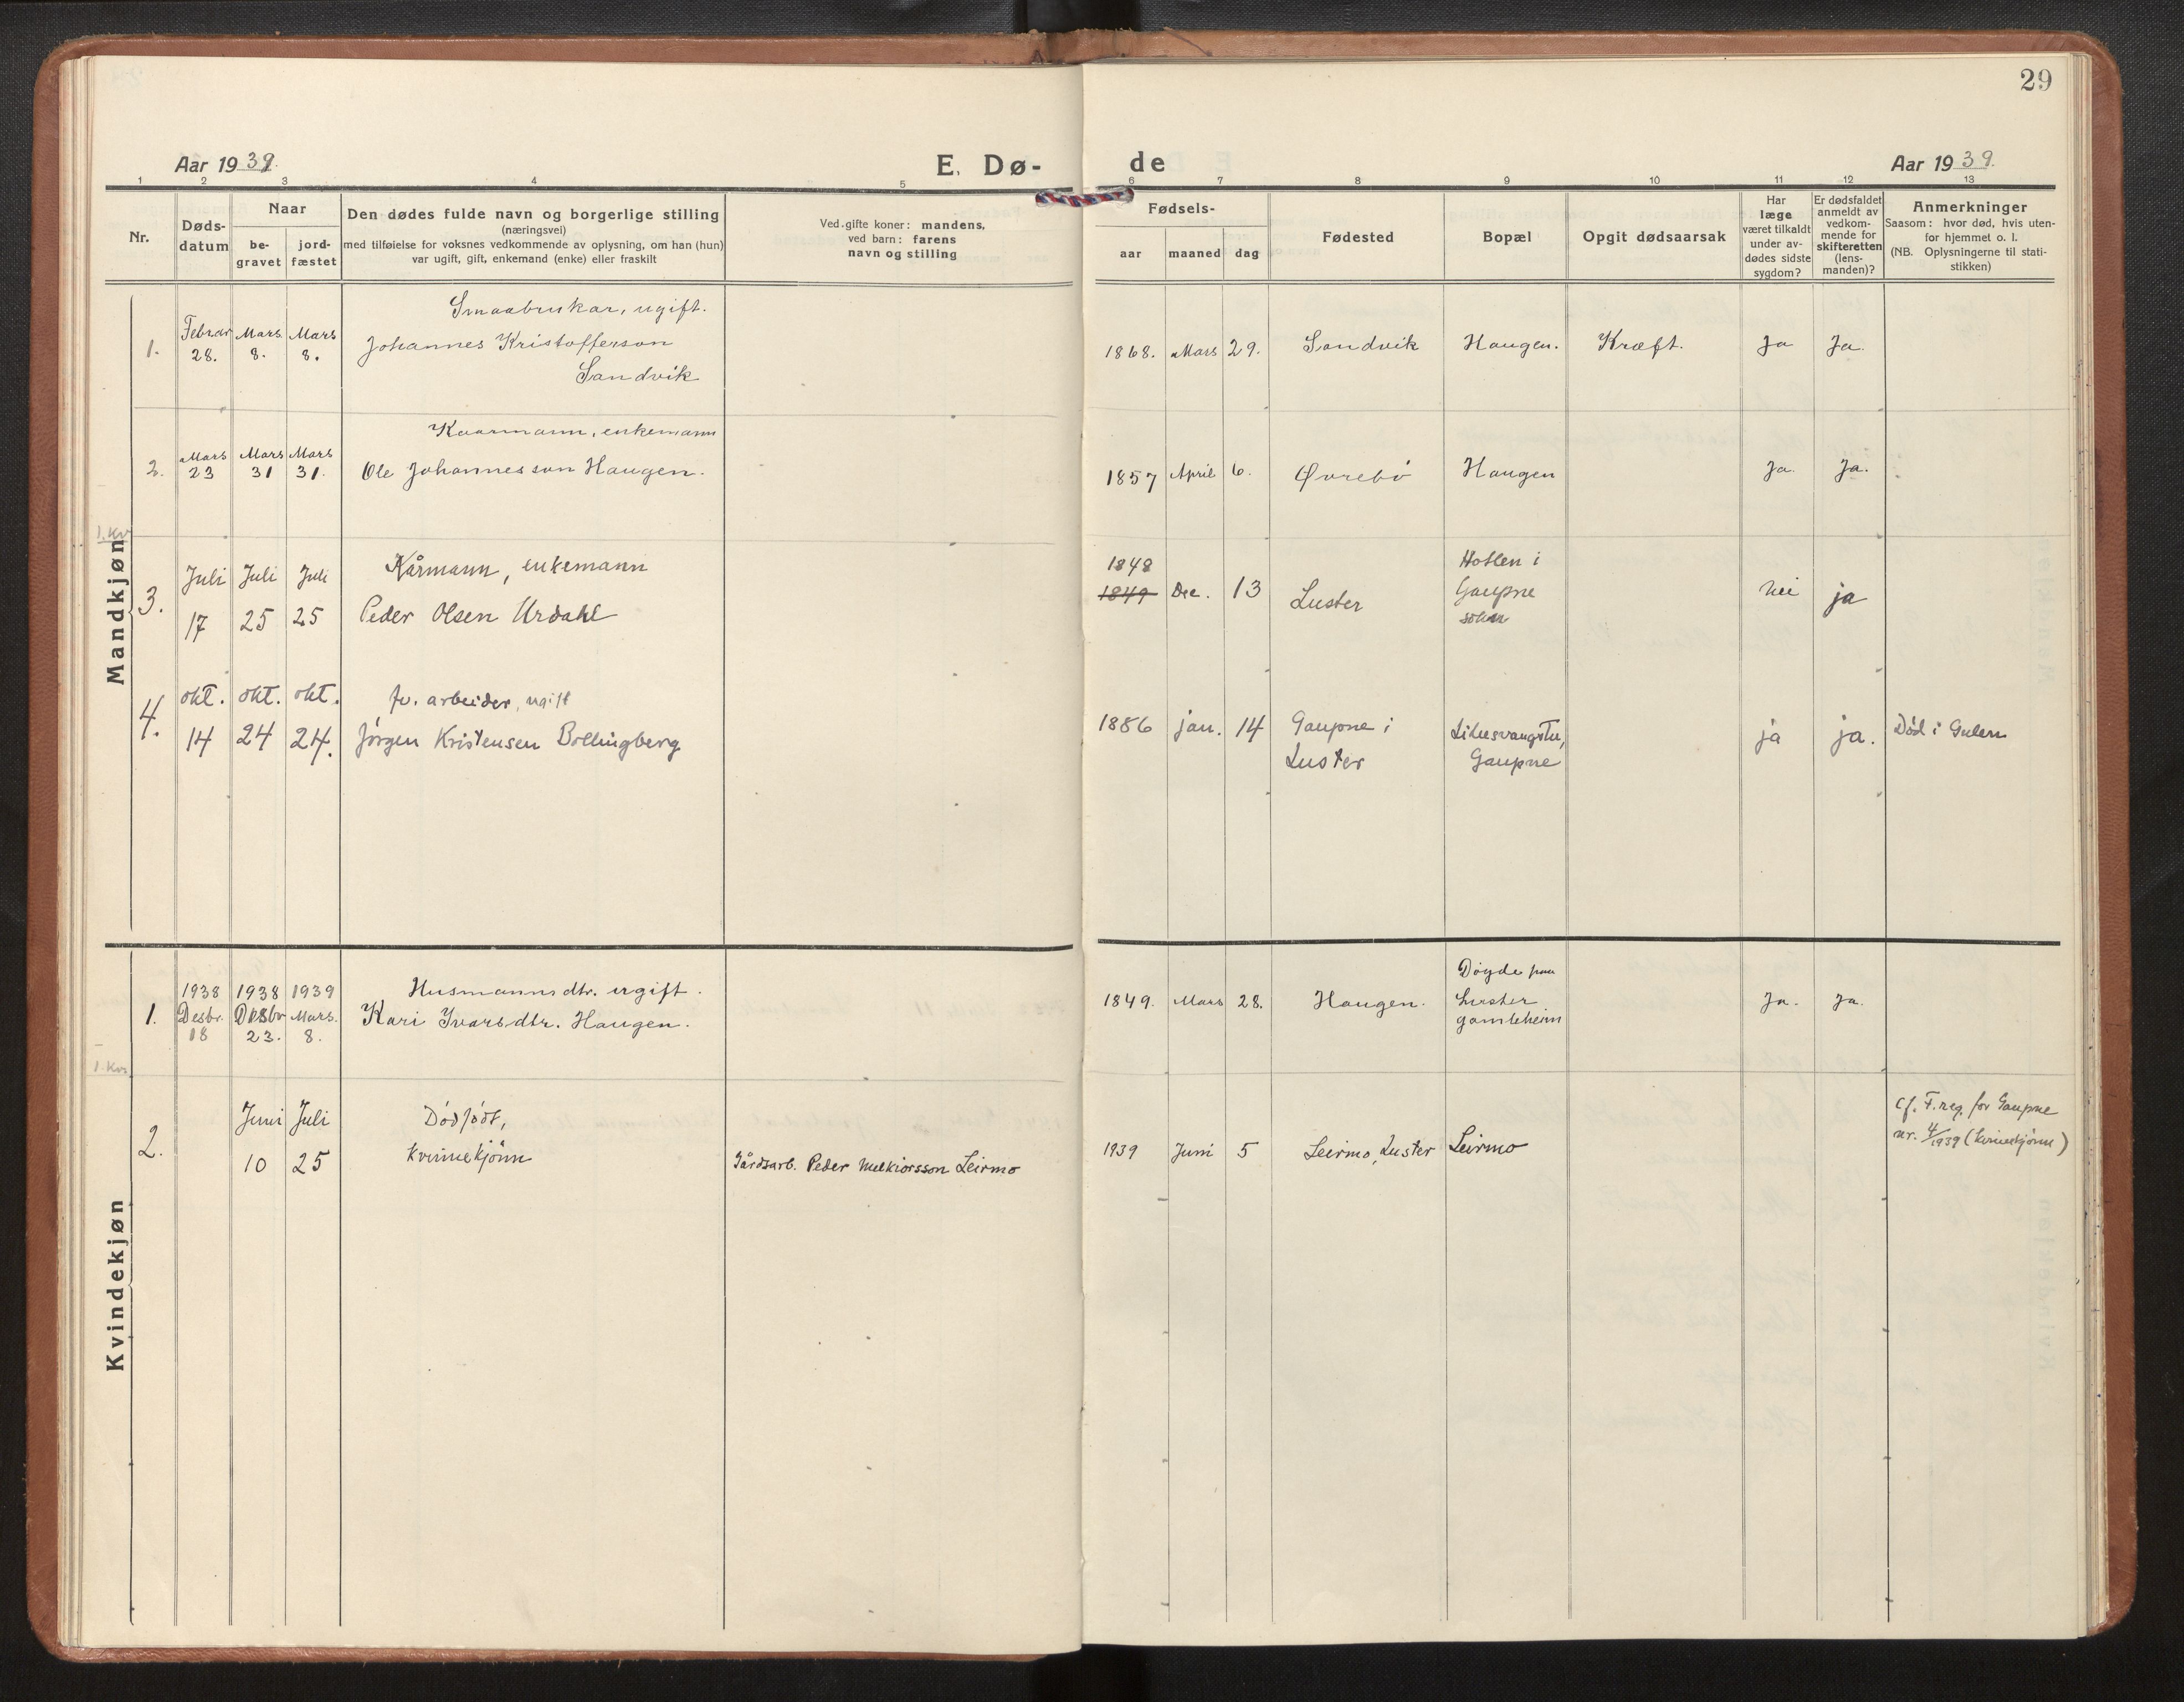 29
Aar 1939.
E. Dø-
de
Aar 1939.
1 2 3 4 5 6 7 8 9 10 11 12 13
Nr.
Døds-
datum
Naar
be-
gravet
jord-
fæstet
Den dødes fulde navn og borgerlige stilling
(næringsvei)
med tilføielse for voksnes vedkommende av oplysning, om han (hun)
var ugift, gift, enkemand (enke) eller fraskilt
Ved gifte koner: mandens,
ved barn: farens
navn og stilling
Fødsels-
aar
maaned
dag
Fødested
Bopæl
Opgit dødsaarsak
Har
læge
været tilkaldt
under av-
dødes sidste
sygdom?
Er dødsfaldet
anmeldt av
vedkom-
mende for
skifteretten
(lens-
manden)?
Anmerkninger
Saasom: hvor død, hvis uten-
for hjemmet o. l.
(NB. Oplysningerne til stati-
stikken)
Mandkjøn
Smaabrukar, ugift.
1. Februar 28. Mars 8. Mars 8. Johannes Kristofferson
Sandvik
1868. Mars 29. Sandvik Haugen. Kræft. Ja Ja.
Kaarmann, enkemann
2. Mars 23 Mars 31 Mars 31. Ole Johannesson Haugen.
1857 April 6. Øvrebö Haugen Ja. Ja.
1. Kv
Kårmann, enkemann
3. Juli 17 Juli 25 Juli 25 Peder Olsen Urdahl
1848
1849 Dec. 13 Luster
Gaupne
nei ja
fv. arbeider, ugift
4. okt. 14 okt. 24 okt. 24. Jörgen Kristensen Bollingberg
1886 jan. 14 Gaupne i
Luster
Gaupne
ja ja. Död i Gulen
Kvindekjøn
Husmannsdtr. ugift.
1. 1938 Desbr. 18 1938 Desbr 23. 1939 Mars. 8. Kari Ivarsdtr. Haugen.
1849. Mars 28. Haugen.
Döyde paa
Luster
gamleheim
Ja. Ja.
1. Kv.
Dödfödt,
2. Juni 10 Juli 25 kvinnekjönn
Gårdsarb. Peder Melkiorsson Leirmo
1939 Juni 5 Leirmo, Luster Leirmo
Cf. F.reg. for Gaupne
nr. 4/1939 (kvinnekjönn)